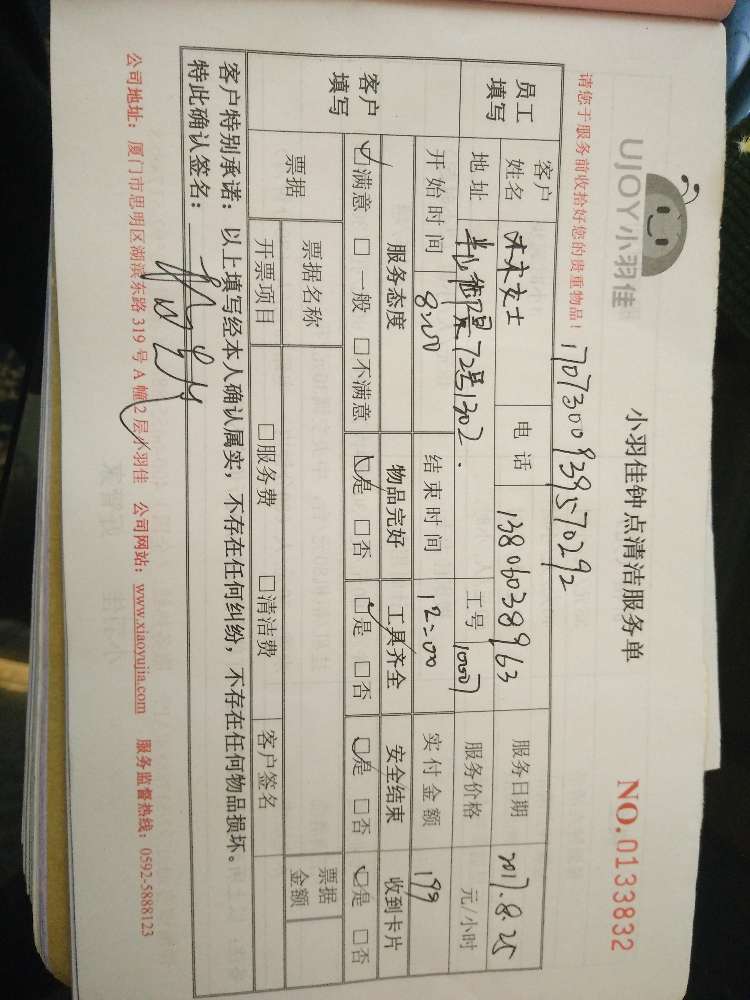 UJOY小羽佳
小羽佳钟点清洁服务单
NO.0133832
请您于服务前收拾好您的贵重物品！
1707300939570292
员工填写
客户姓名 女士 电话 13806038963 服务日期 2017.8.25
地址 72号1302. 工号 服务价格 元/小时
开始时间 8:00 结束时间 12:00 实付金额 199
客户填写
服务态度 物品完好 工具齐全 安全结束 收到卡片
☑满意 □一般 □不满意 ☑是 □否 ☑是 □否 ☑是 □否 ☑是 □否
票据 票据名称 票据金额
开票项目 □服务费 □清洁费 客户签名
客户特别承诺：以上填写经本人确认属实，不存在任何纠纷，不存在任何物品损坏。
特此确认签名：
公司地址：厦门市思明区湖滨东路 319 号 A 幢 2 层小羽佳 公司网站：www.xiaoyujia.com 服务监督热线：0592-5888123